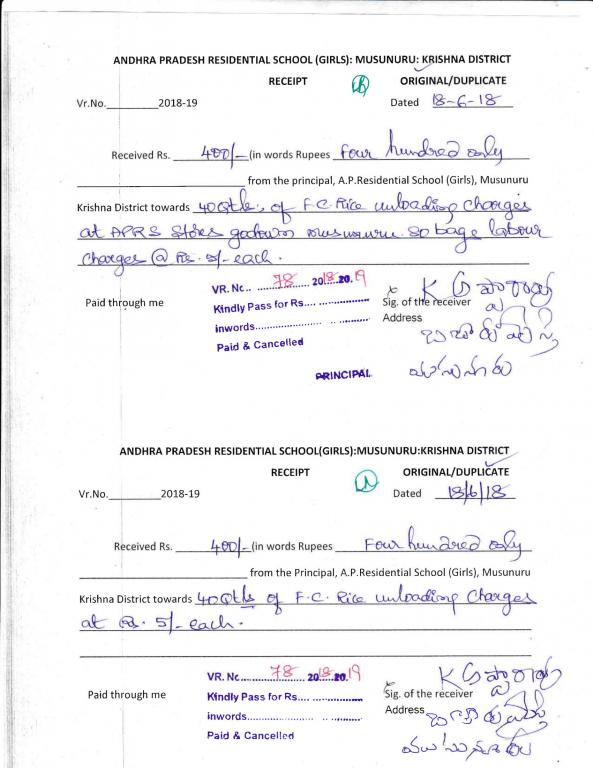 ANDHRA PRADESH RESIDENTIAL SCHOOL (GIRLS): MUSUNURU: KRISHNA DISTRICT
RECEIPT ORIGINAL/DUPLICATE
Vr.No.__________2018-19 Dated 18-6-18
Received Rs. 400/- (in words Rupees Four hundred only
from the principal, A.P.Residential School (Girls), Musunuru
Krishna District towards 40 Qtls, of F.C. Rice unloading charges
at APRS Stores godown musunuru. 80 bags labour
charges @ Rs. 5/- each.
VR. No.. 78 2018-2019
Kindly Pass for Rs....
Paid through me Sig. of the receiver
inwords....
Address
Paid & Cancelled
PRINCIPAL
ANDHRA PRADESH RESIDENTIAL SCHOOL(GIRLS):MUSUNURU:KRISHNA DISTRICT
RECEIPT ORIGINAL/DUPLICATE
Vr.No.__________2018-19 Dated 18/6/18
Received Rs. 400/- (in words Rupees Four hundred only
from the Principal, A.P.Residential School (Girls), Musunuru
Krishna District towards 40 Qtls of F.C. Rice unloading charges
at Rs. 5/- each.
VR. No... 78 2018-2019
Paid through me Kindly Pass for Rs.... Sig. of the receiver
inwords.... Address
Paid & Cancelled